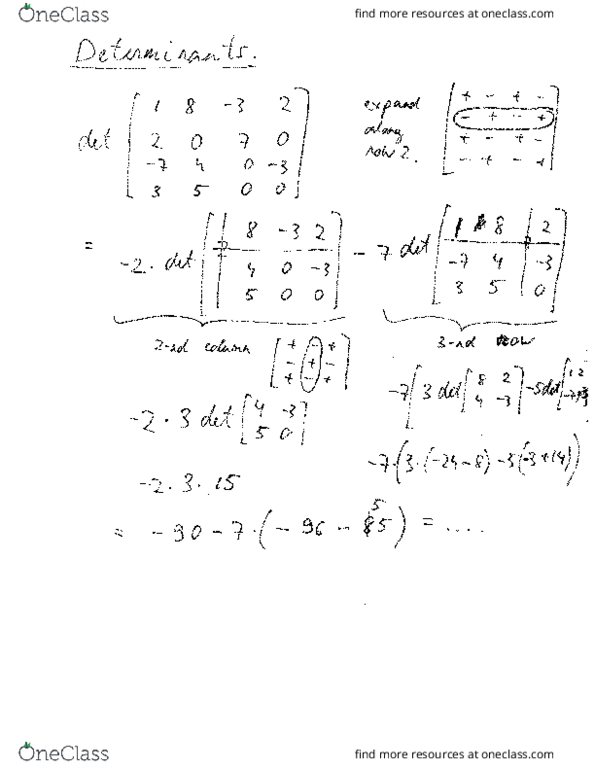 OneClass
find more resources at oneclass.com
Determinants.
det [ 1 8 -3 2
2 0 7 0
-7 4 0 -3
3 5 0 0 ]
expand
along
row 2.
[ + - + -
- + - +
+ - + -
- + - + ]
= -2 · det [ 8 -3 2
4 0 -3
5 0 0 ]
- 7 det [ 1 8 2
-7 4 -3
3 5 0 ]
2-nd column [ + - +
- + -
+ - + ]
3-rd row
-2 · 3 det [ 4 -3
5 0 ]
-7 [ 3 det [ 8 2
4 -3 ] -5 det [ 1 2
-2 · 3 · 15
-7 · (3 · (-24 - 8) - 5 (-3 + 14))
= -90 - 7 · ( - 96 - 55 ) = ....
OneClass
find more resources at oneclass.com